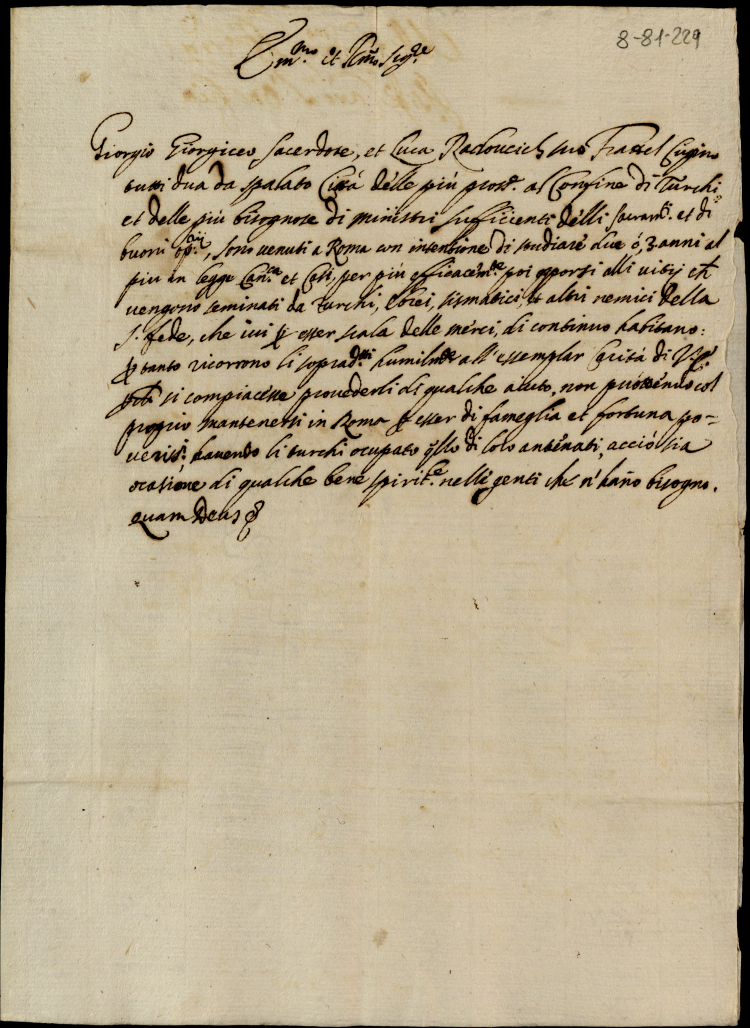 8-81-229
Em.mo et R.mo Sig.re
Giorgio Giorgiceo Sacerdote, et Luca Radoucich suo Fratel Cugino
tutti dua da Spalato Città delle più pross.e al Confine di Turchi
et delle più bisognose di ministri sufficienti delli Sacram.ti et di
buoni op.rii, sono venuti a Roma con intentione di studiare due ò, 3 anni al
piu in legge Can.ca et Casi, per più efficacem.te poi opporsi alli vitij ch
vengono seminati da Turchi, Ebrei, sismatici, et altri nemici della
S. fede, che ivi p esser scala delle merci, di continuo habitano:
p tanto ricorrono li soprad.tti humilm.te all' essemplar Carità di
si compiacesse provederli di qualche aiuto, non puotendo col
proprio mantenersi in Roma p esser di fameglia et fortuna po=
veriss.i, havendo li turchi occupato qllo di loro antenati, acciò sia
ocasione di qualche bene spirit.e nelle genti che n' hano bisogno.
quam Deus